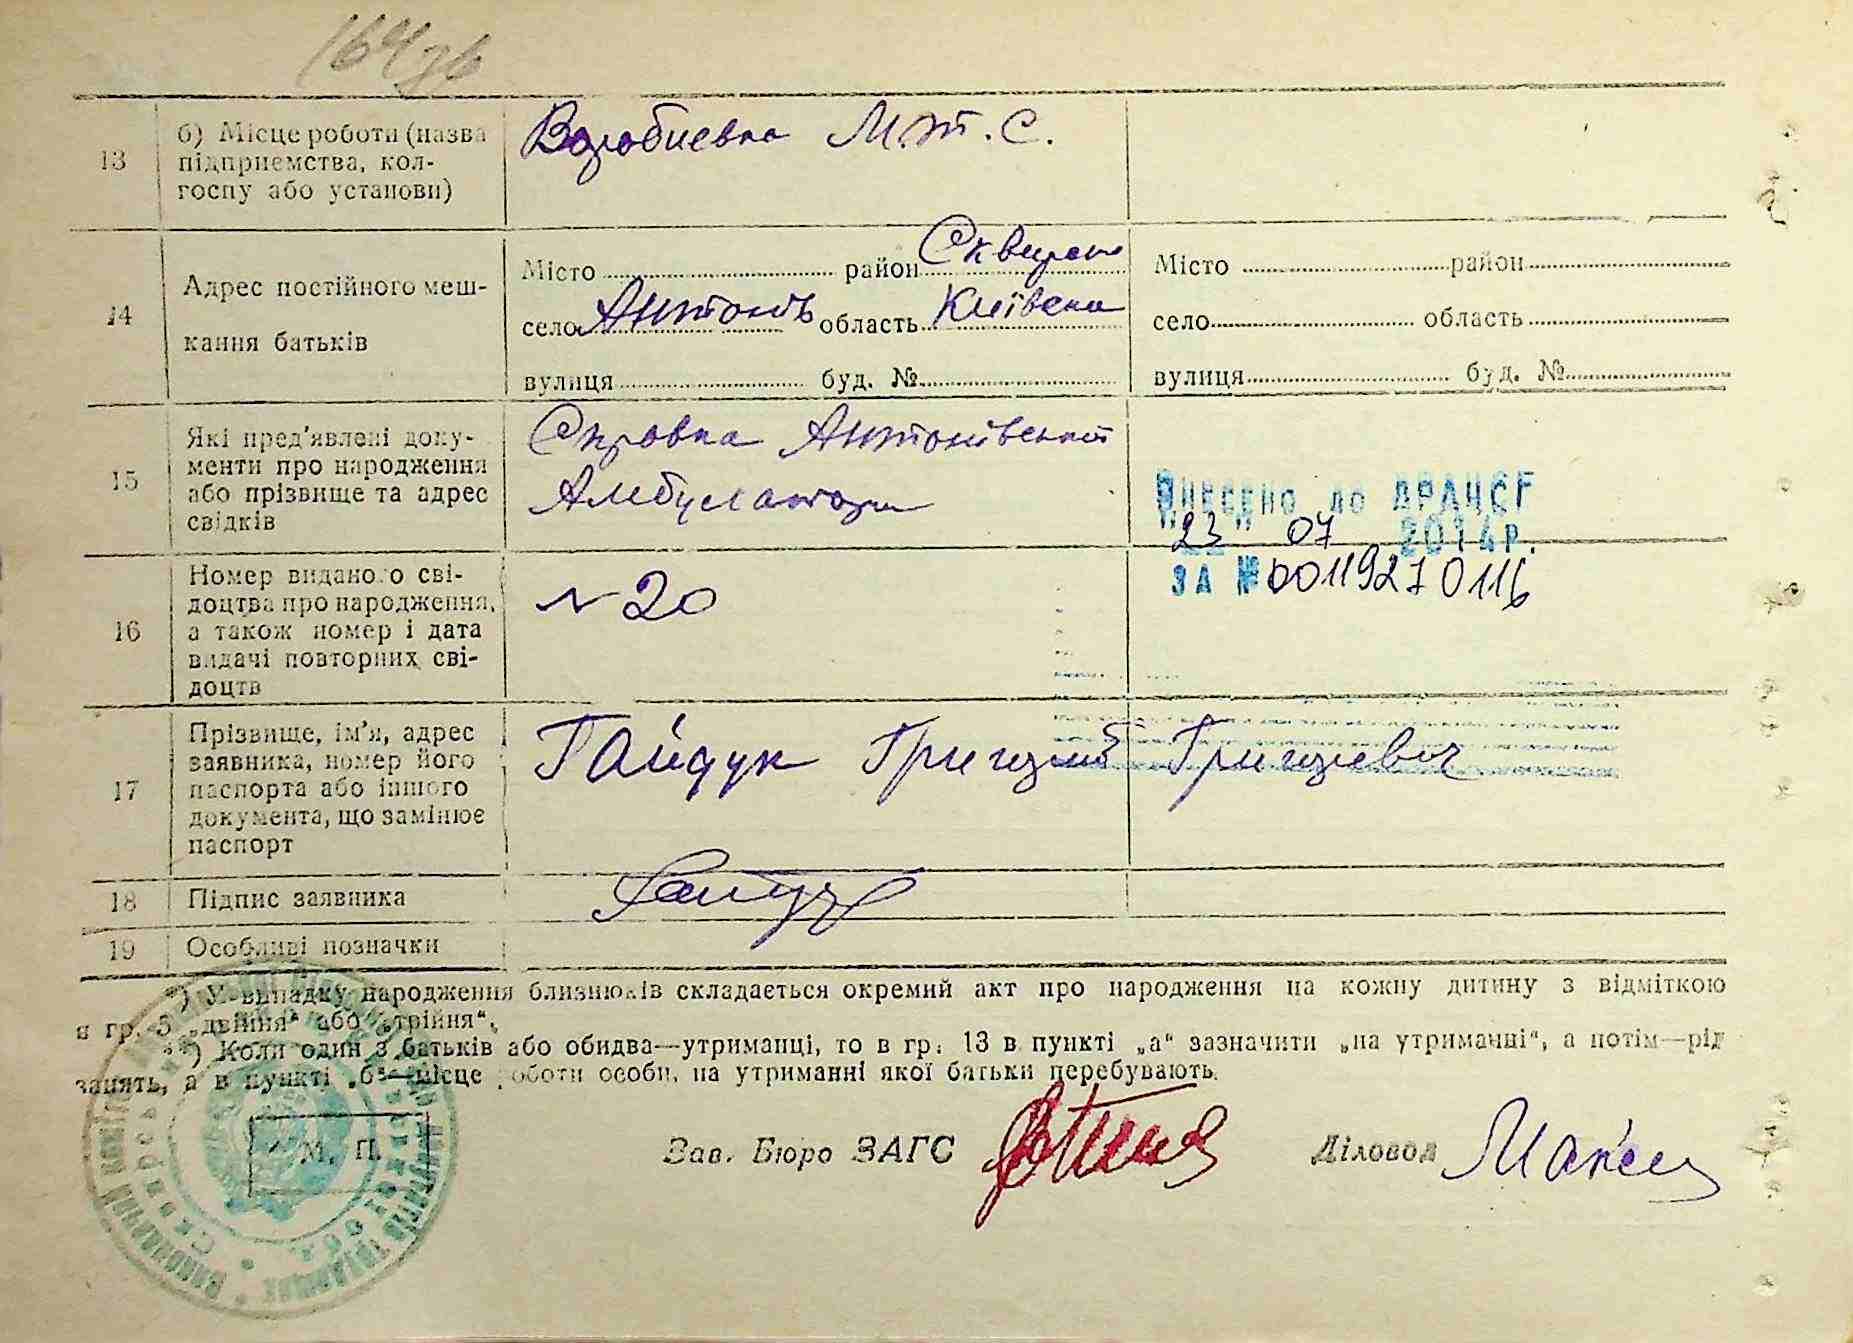 164зв
13 б) Місце роботи (назва підприємства, колгоспу або установи) Воробиевка М.т.С.
14 Адрес постійного мешкання батьків
Місто район Сквирськ Місто район
село Антонів область Київська село область
вулиця буд. № вулиця буд. №
15 Які пред'явлені документи про народження або прізвище та адрес свідків Справка Антонівської
Амбулатори
Внесено до ДРАЦСГ
"23" 07 2014р.
ЗА № 00119270116
16 Номер виданого свідоцтва про народження, а також номер і дата видачі повторних свідоцтв №20
17 Прізвище, ім'я, адрес заявника, номер його паспорта або іншого документа, що замінює паспорт Гайдук Григорий Григориевич
18 Підпис заявника
19 Особливі позначки
*) У випадку народження близнюків складається окремий акт про народження на кожну дитину з відміткою
в гр. 3 „двійня“ або „трійня“.
**) Коли один з батьків або обидва—утриманці, то в гр. 13 в пункті „а“ зазначити „на утриманні“, а потім—рід
занять, а в пункті „б“—місце роботи особи, на утриманні якої батьки перебувають.
М. П. Зав. Бюро ЗАГС Діловод